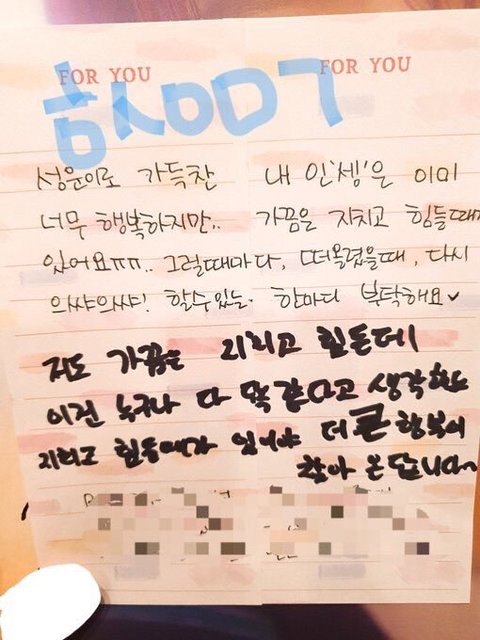 FOR YOU FOR YOU
성운이로 가득찬 내 인'셍'은 이미
너무 행복하지만.. 가끔은 지치고 힘들때가
있어요ㅠㅠ.. 그럴때마다, 떠올렸을때, 다시
으쌰으쌰! 할수있는. 한마디 부탁해요
저도 가끔은 지치고 힘든데
이건 누구나 다 똑같다고 생각하는
지치고 힘들때가 있어야 더 큰 행복이
찾아 온답니다~